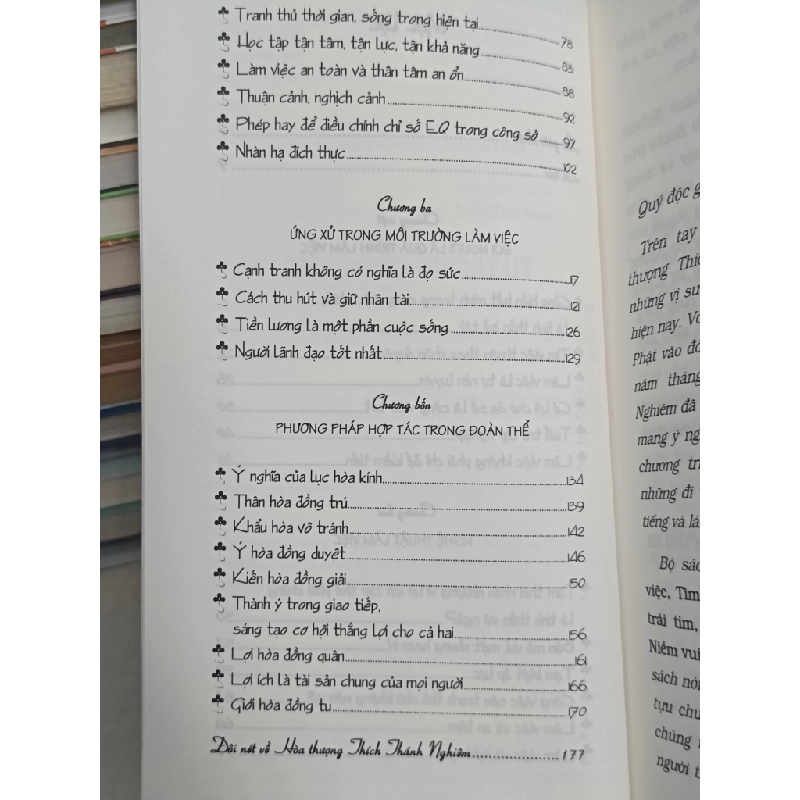 Tranh thủ thời gian, sống trong hiện tại 78
Học tập tận tâm, tận lực, tận khả năng 83
Làm việc an toàn và thân tâm an ổn 88
Thuận cảnh, nghịch cảnh 92
Phép hay để điều chỉnh chỉ số EQ trong công sở 97
Nhàn hạ đích thực 102
Chương ba
ỨNG XỬ TRONG MÔI TRƯỜNG LÀM VIỆC
Cạnh tranh không có nghĩa là đọ sức 117
Cách thu hút và giữ nhân tài 121
Tiền lương là một phần cuộc sống 126
Người lãnh đạo tốt nhất 129
Chương bốn
PHƯƠNG PHÁP HỢP TÁC TRONG ĐOÀN THỂ
Ý nghĩa của lục hòa kính 134
Thân hòa đồng trú 139
Khẩu hòa vô tránh 142
Ý hòa đồng duyệt 146
Kiến hòa đồng giải 150
Thành ý trong giao tiếp,
sáng tạo cơ hội thắng lợi cho cả hai 156
Lợi hòa đồng quân 161
Lợi ích là tài sản chung của mọi người 166
Giới hòa đồng tu 170
Đôi nét về Hòa thượng Thích Thánh Nghiêm 177
Quý độc g
Trên tay
thượng Thíc
những vị sư
hiện nay. Vớ
Phật vào đờ
năm tháng
Nghiêm đã
mang ý ng
chương tr
những đi
tiếng và lâ
Bộ sác
việc, Tìm
trái tim,
Niềm vui
sách nói
tựu chu
chúng
người t